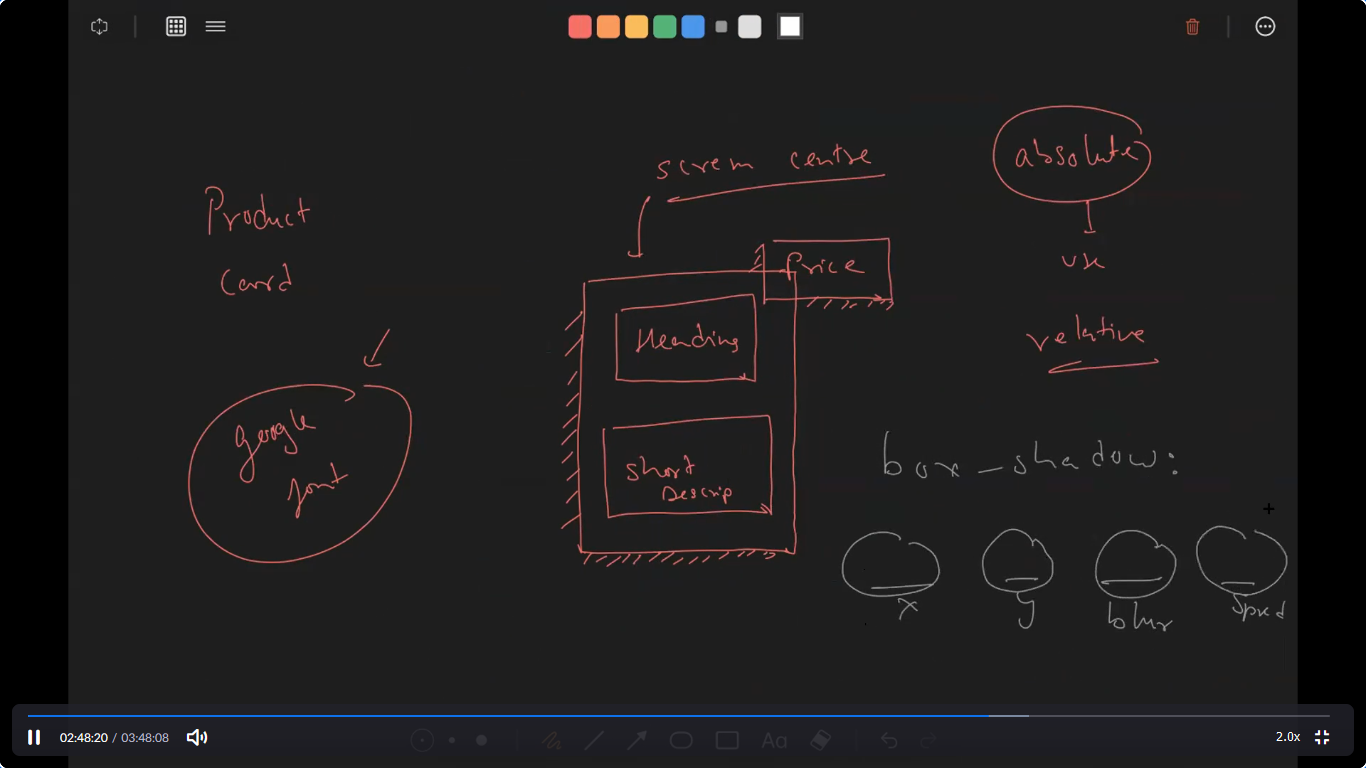 Product
Card
google
font
screen centre
Price
Heading
Short
Descrip
absolute
use
relative
box-shadow:
x
y
blur
Spred
Aa
02:48:20 / 03:48:08
2.0x